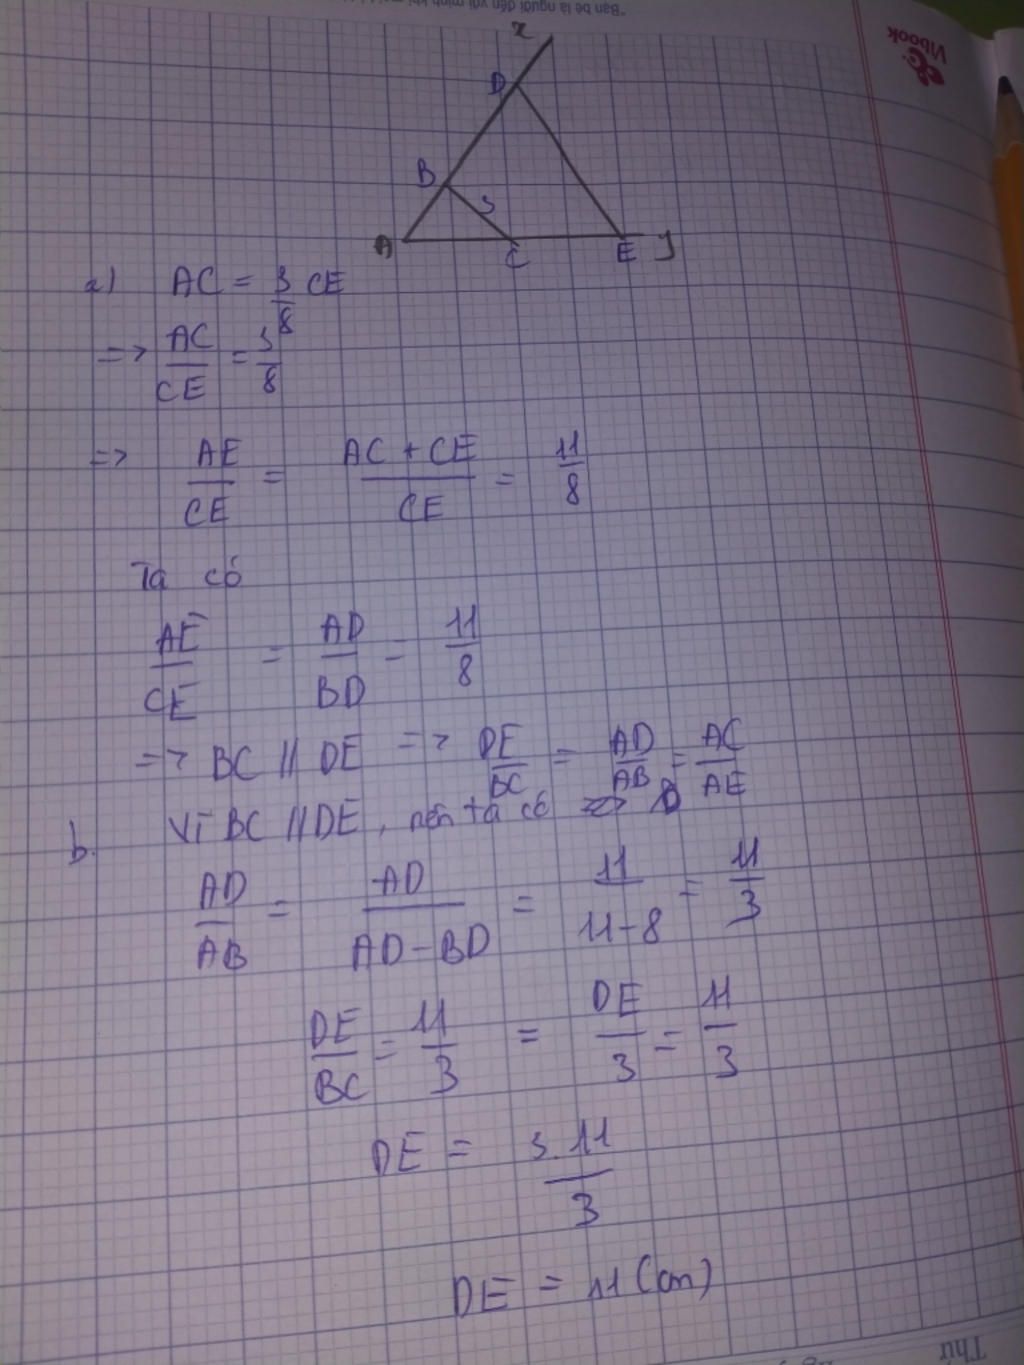 "Bạn bè là người đến với mình khi
Vibook
x
D
B
3
A
C
E
y
a) AC = 3/8 CE
=> AC/CE = 3/8
=> AE/CE = AC + CE/CE = 11/8
Ta có
AE/CE = AD/BD = 11/8
=> BC // DE => DE/BC = AD/AB = AC/AE
b. Vì BC // DE, nên ta có
AD/AB = AD/AD - BD = 11/11-8 = 11/3
DE/BC = 11/3 = DE/3 = 11/3
DE = 3.11/3
DE = 11 (cm)
Thứ